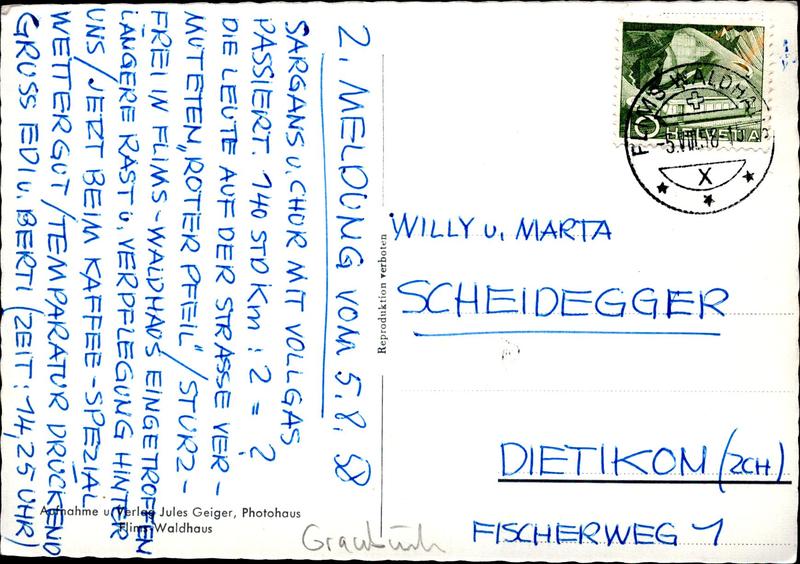 2. MELDUNG VOM 5.8.58
SARGANS U. CHUR MIT VOLLGAS
PASSIERT. 140 STD KM : 2 = ?
DIE LEUTE AUF DER STRASSE VER-
MUTETEN „ROTER PFEIL"/STURZ-
FREI IN FLIMS-WALDHAUS EINGETROFFEN
LÄNGERE RAST U. VERPFLEGUNG HINTER
UNS/JETZT BEIM KAFFEE-SPEZIAL
WETTER GUT/TEMPARATUR DRÜCKEND
GRUSS EDI U. BERTI (ZEIT: 14,25 UHR)
Aufnahme u. Verlag Jules Geiger, Photohaus
Flims Waldhaus
Reproduktion verboten
HELVETIA
10
FLIMS-WALDHAUS
-5.VIII.58
X
WILLY U. MARTA
SCHEIDEGGER
DIETIKON (ZCH)
FISCHERWEG 1